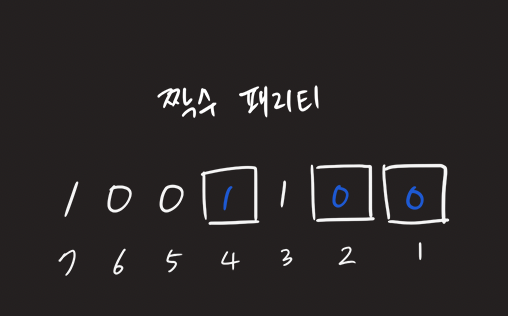 짝수 패리티
1 0 0 1 1 0 0
7 6 5 4 3 2 1